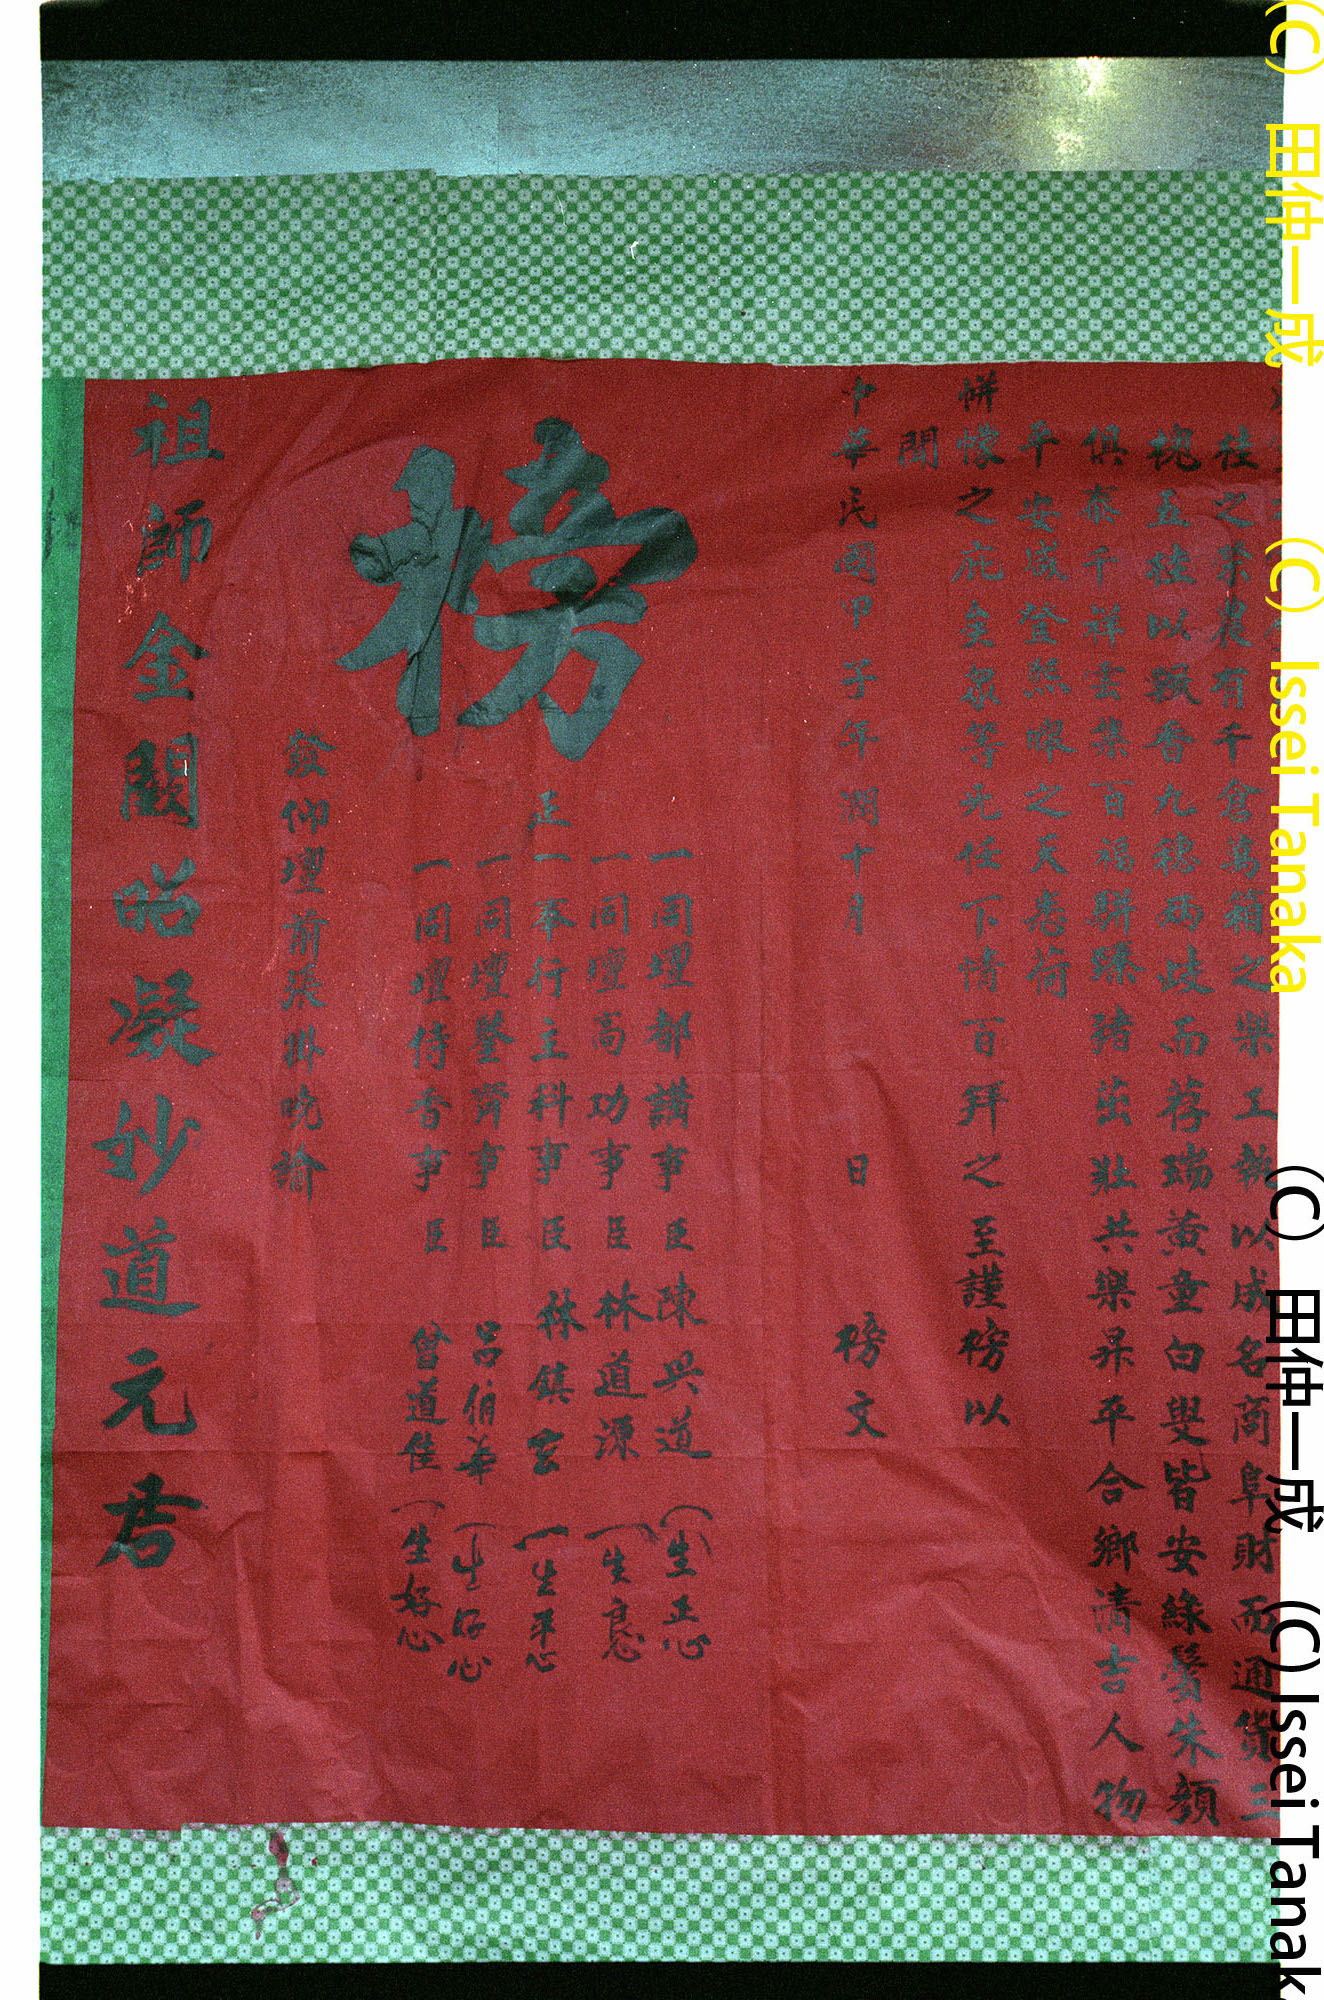 桂之荣農有千倉萬箱之樂工執以成名商阜財而通貨三
槐五桂以飄香九穗両歧而荐瑞黃童白叟皆安綠鬢朱顏
俱泰千祥雲集百福駢臻猪茁壯共樂昇平合鄉清吉人物
平安咸登熙皥之天悉荷
帡幪之庇矣衆等無任下情百拜之至謹榜以
聞
中華民國甲子年潤十月 日 榜文
一同壇都講事臣 陳兴道 (一生正心)
一同壇高功事臣 林道源 (一生良心)
正一奉行主科事臣 林鎮玄 (一生平心)
一同壇鑒齊事臣 呂伯華 (一生好心)
一同壇侍香事臣 曾道佳 (一生好心)
榜
發仰壇前張掛曉諭
祖師金闕昭凝妙道元君
(C) 田仲一成 (C) Issei Tanaka
(C) 田仲一成 (C) Issei Tanak